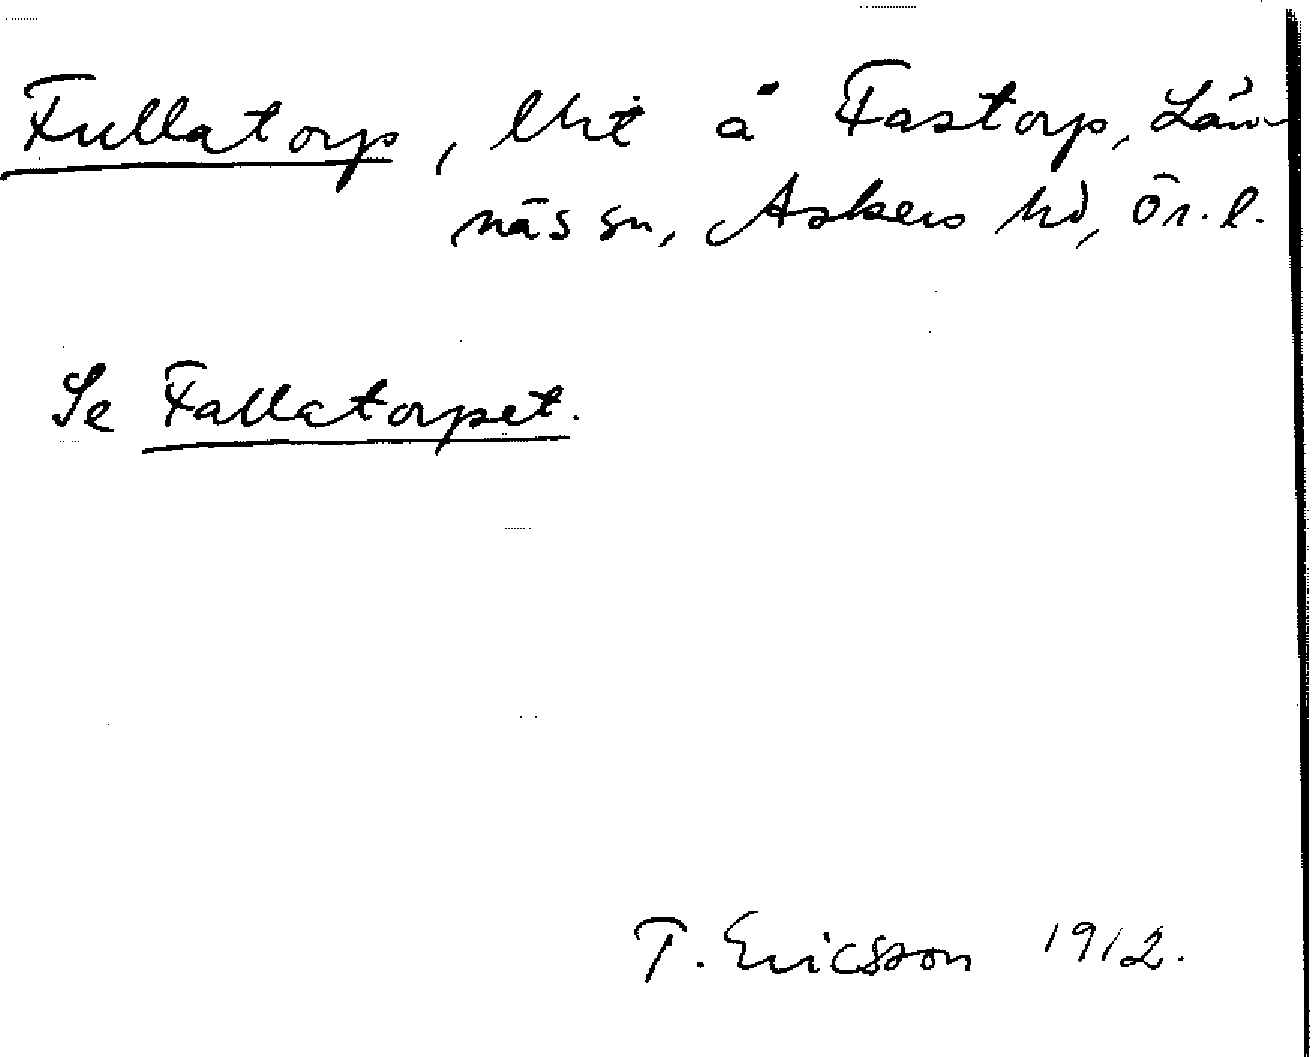 Fullatorp, lht å Fastorp, Län-
näs sn, Askers hd, Ör. l.
Se Fallatorpet.
T. Ericsson 1912.